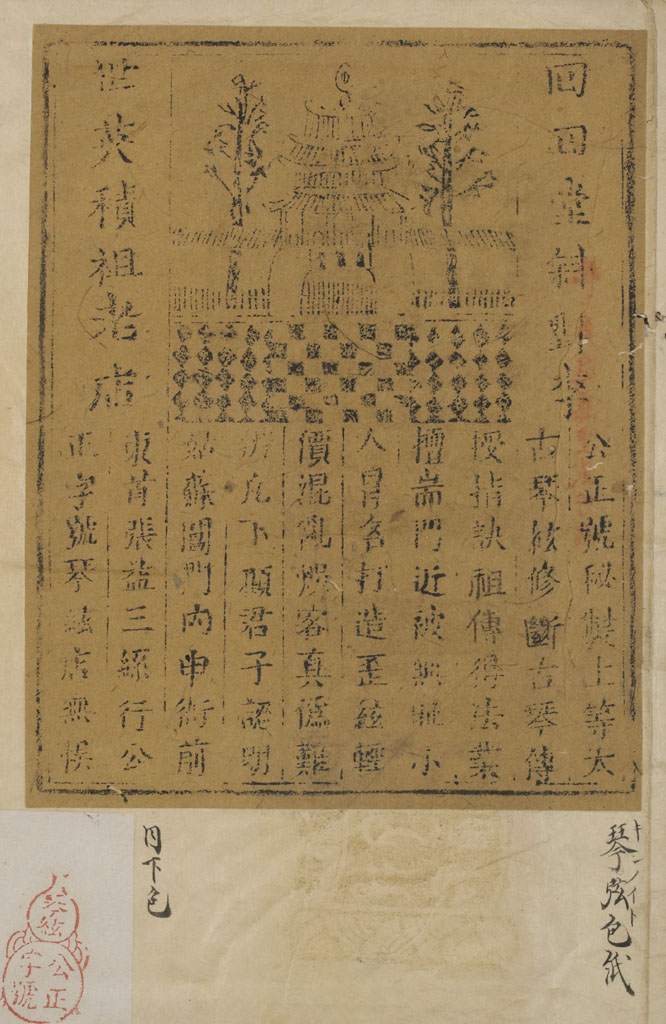 回回堂斜對李
世英積祖老店
公正號秘製上等太
古琴絃修斷古琴傳
授指訣祖傳得法業
擅耑門近被無恥小
人冒名打造歪絃輕
價混亂候客真偽難
辨凡下顧君子認明
姑蘇閶門內申衙前
東首張益三綵行公
正字號琴絃店無悮
キンノイト
琴弦包紙
同下包
琴絃
公正
字號